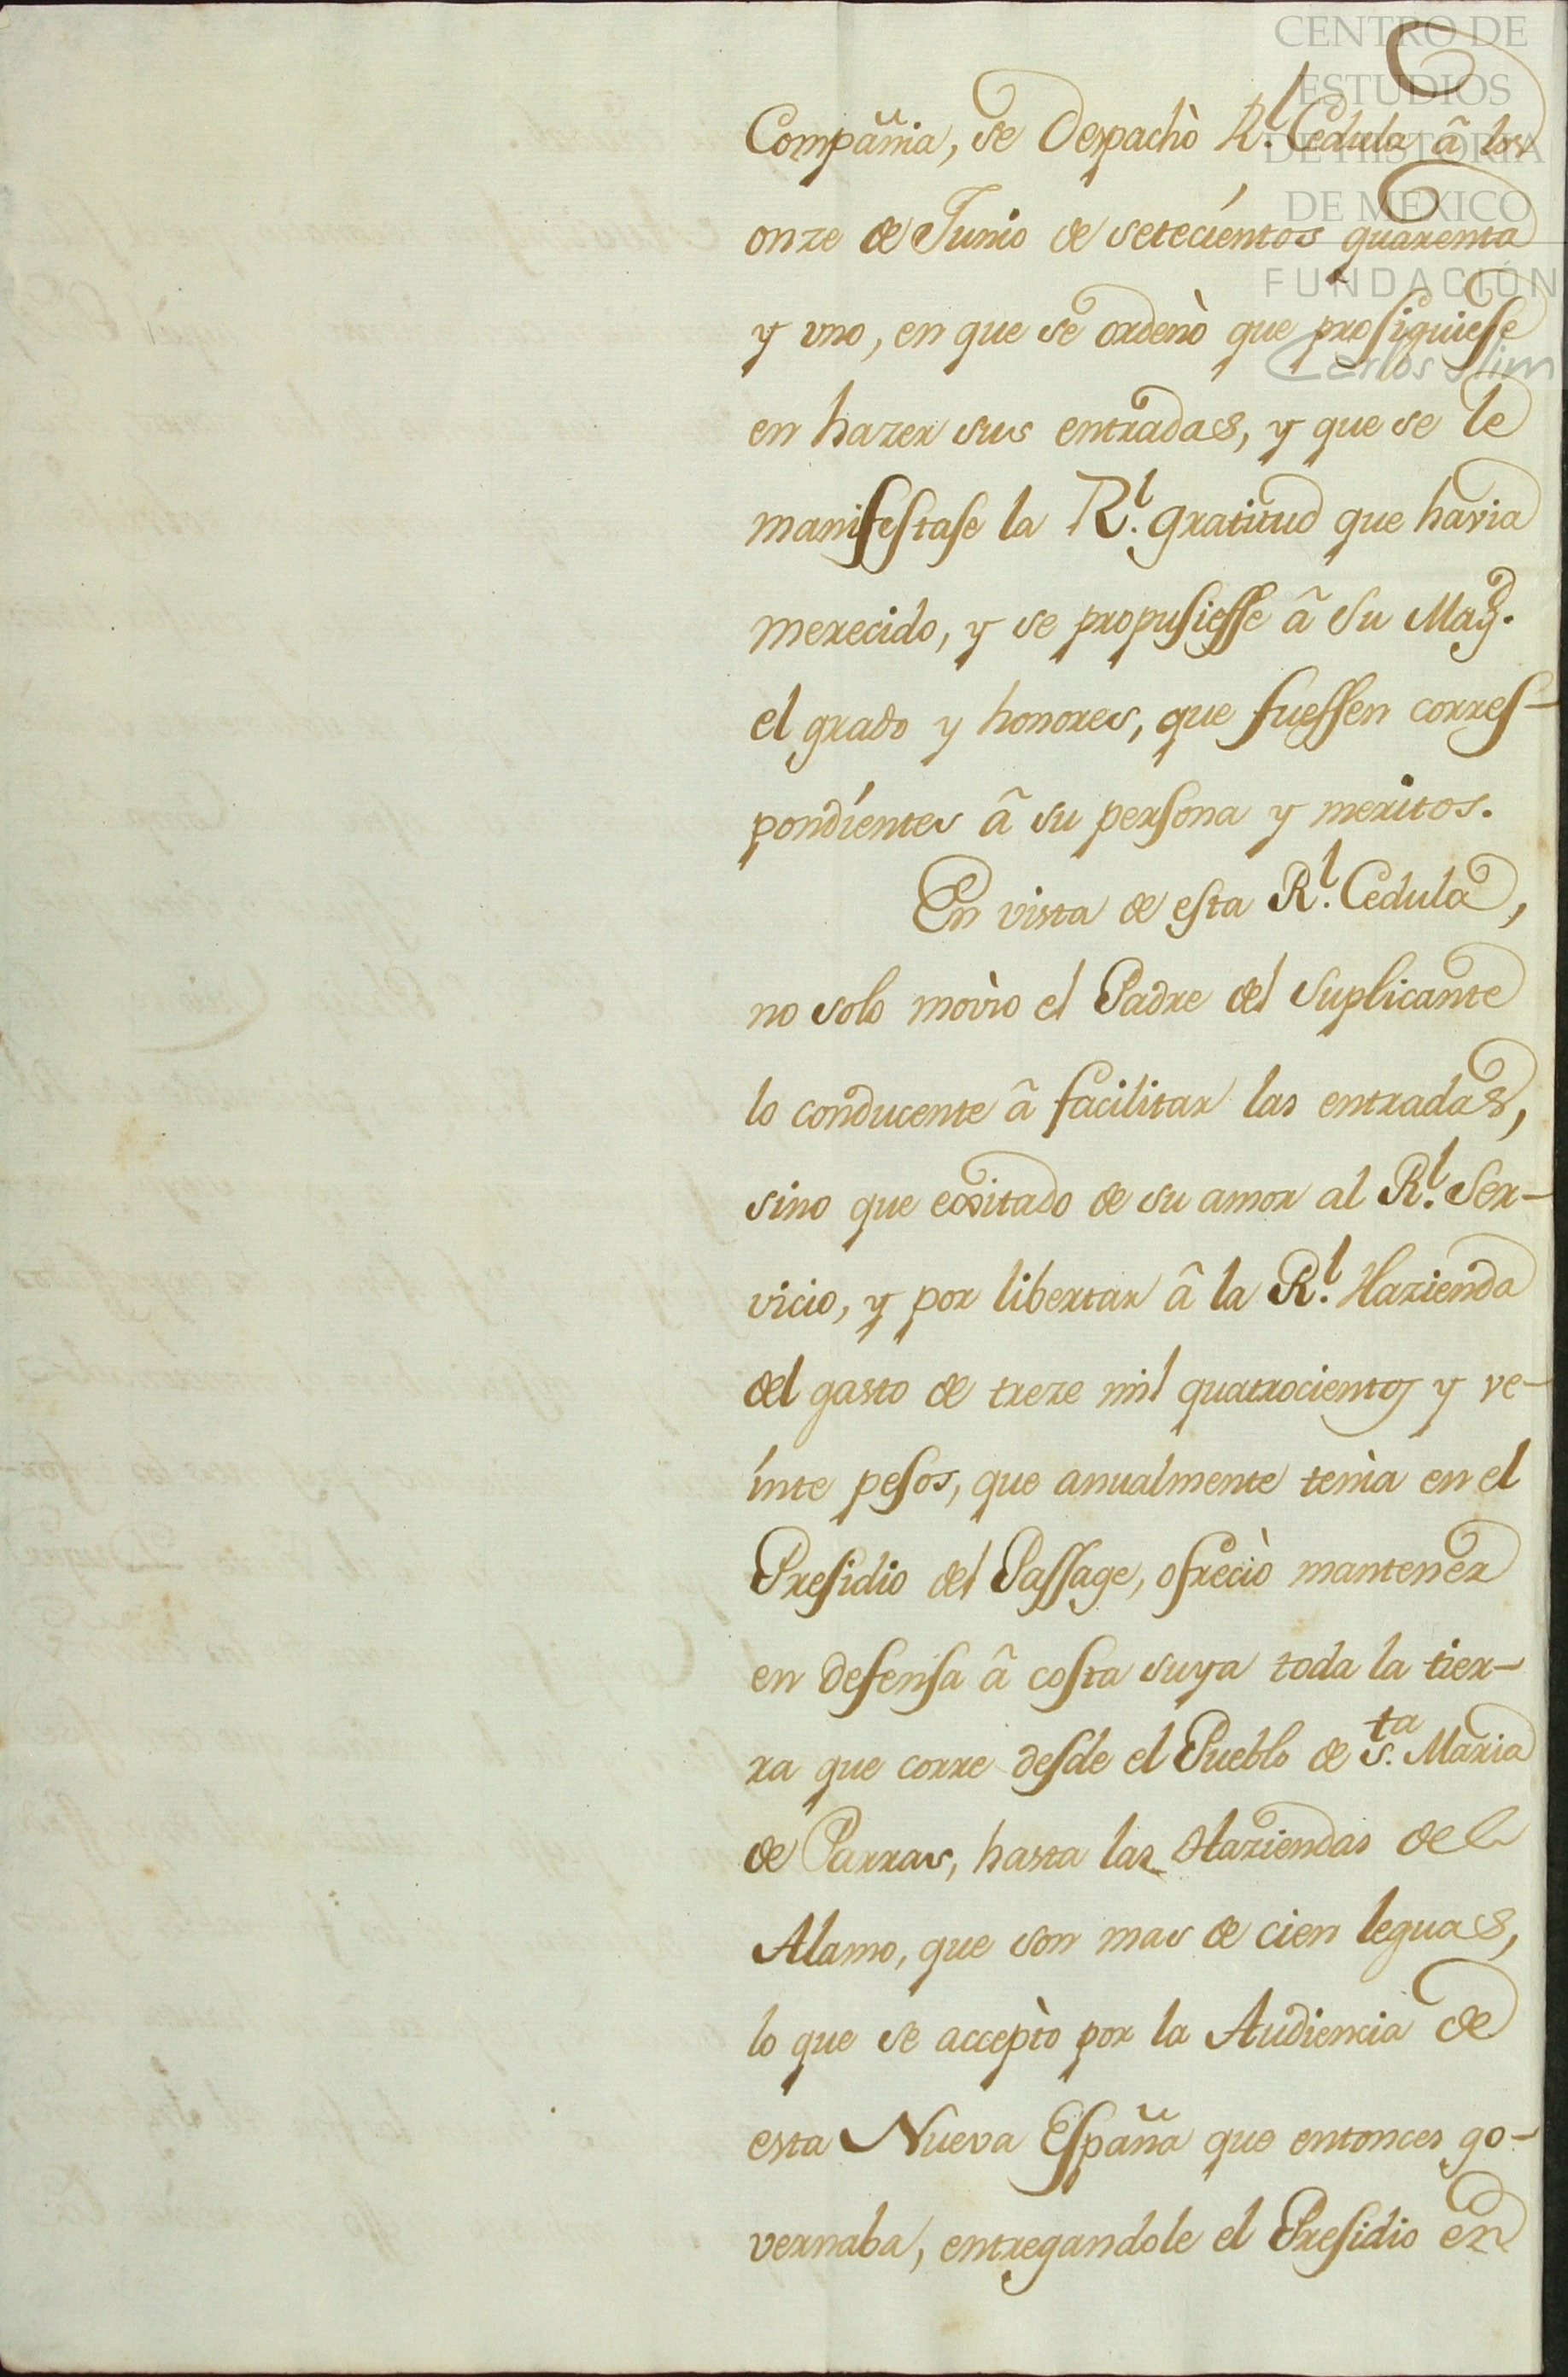 CENTRO DE
ESTUDIOS
DE HISTORIA
DE MEXICO
FUNDACIÓN
Carlos Slim
Compañia, se Despachò R.l Cedula â los
onze de Junio de setecientos quarenta
y vno, en que se ordenò que prosiguiese
en hazer sus entradas, y que se le
manifestase la R.l gratitud que havia
merecido, y se propusiesse â Su Mag.d
el grado y honores, que fuessen corres-
pondíentes â su persona y meritos.
En vista de esta R.l Cedula,
no solo moviò el Padre del Suplicante
lo conducente â facilitar las entradas,
sino que exsitado de su amor al R.l Ser-
vicio, y por libertar â la R.l Hazienda
del gasto de treze mil quatrocientos y ve-
ínte pesos, que anualmente tenia en el
Presidio del Passage, ofreciò mantener
en defensa â costa suya toda la tier-
ra que corre desde el Pueblo de S.ta Maria
de Parras, hasta las Haziendas del
Alamo, que son mas de cien leguas,
lo que se acceptò por la Audiencia de
esta Nueva España que entonces go-
vernaba, entregandole el Presidio en